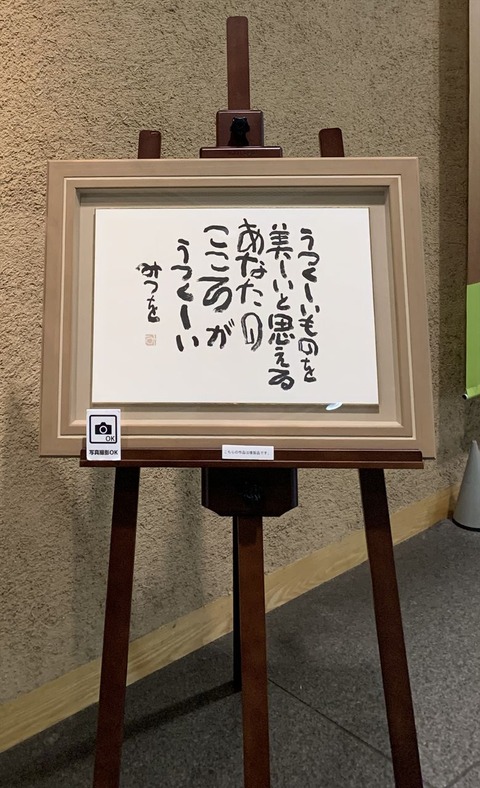 うつくしいものを
美しいと思える
あなたの
こころが
うつくしい
みつを
OK
写真撮影OK
こちらの作品は複製品です。